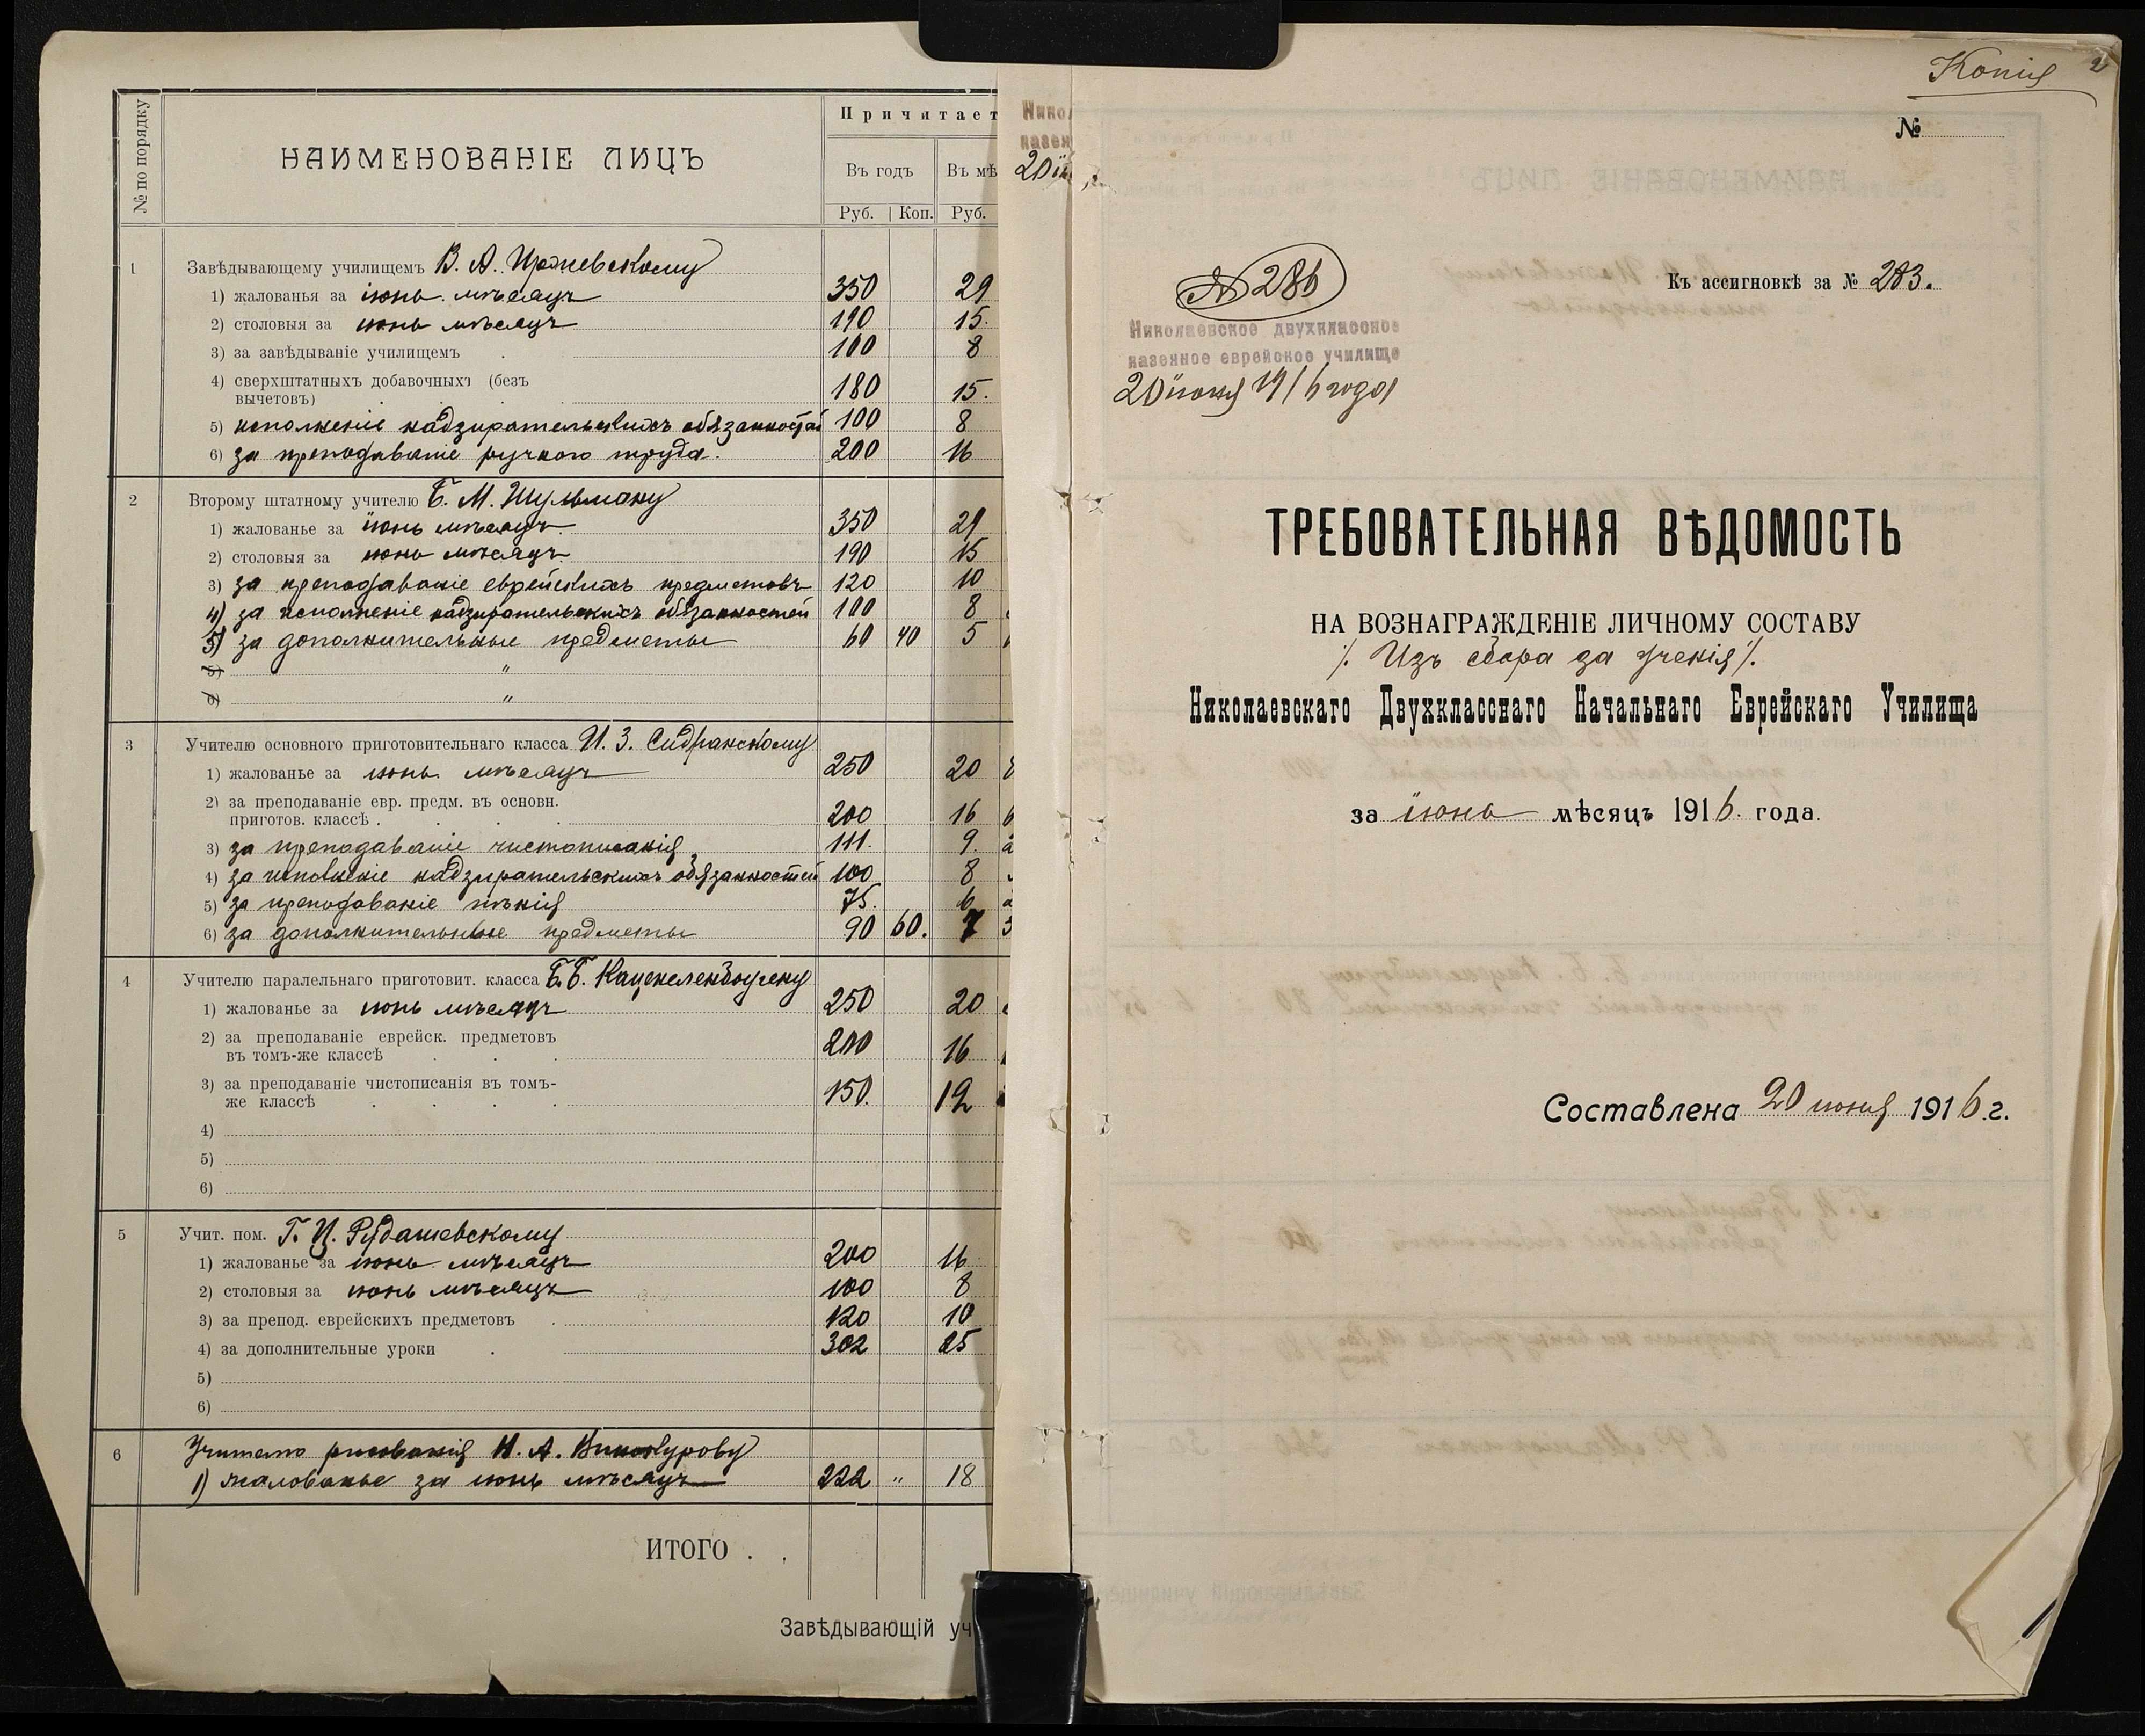 № по порядку
НАИМЕНОВАНІЕ ЛИЦЪ
Причитает
Въ годъ
Въ мѣ
Руб. Коп. Руб.
1 Завѣдывающему училищемъ В. А.
1) жалованья за іюнь мѣсяцъ 350 29
2) столовыя за іюнь мѣсяцъ 190 15.
3) за завѣдываніе училищемъ 100 8
4) сверхштатныхъ добавочныхъ (безъ
вычетовъ) 180 15.
5) исполненіе надзирательскихъ обязанностей 100 8
6) за преподаваніе ручного труда. 200 16
2 Второму штатному учителю Б. М. Шульману
1) жалованье за іюнь мѣсяцъ 350 29
2) столовыя за іюнь мѣсяцъ 190 15
3) за преподаваніе еврейскихъ предметовъ 120 10
4) за исполненіе надзирательскихъ обязанностей 100 8
5) за дополнительные предметы 60 40 5
5) "
6) "
3 Учителю основного приготовительнаго класса И. З. Сидранскому
1) жалованье за іюнь мѣсяцъ 250 20
2) за преподаваніе евр. предм. въ основн.
приготов. классѣ . 200 16
3) за преподаваніе чистописанія 111. 9.
4) за исполненіе надзирательскихъ обязанностей 100 8
5) за преподаваніе пѣнія 75. 6
6) за дополнительные предметы 90 60. 7
4 Учителю паралельнаго приготовит. класса Б. Б. Каценеленбогену
1) жалованье за іюнь мѣсяцъ 250 20
2) за преподаваніе еврейск. предметовъ
въ томъ-же классѣ 200 16
3) за преподаваніе чистописанія въ томъ-
же классѣ 150. 12
4)
5)
6)
5 Учит. пом. Г. И. Рудашевскому
1) жалованье за іюнь мѣсяцъ 200 16
2) столовыя за іюнь мѣсяцъ 100 8
3) за препод. еврейскихъ предметовъ 120 10
4) за дополнительные уроки 302 25
5)
6)
6 Учителю рисованія Н. А. Винокурову
1) жалованье за іюнь мѣсяцъ 222 " 18
ИТОГО . .
Завѣдывающій уч
Нико
казен
20 ію
Копія 2
№
№ 286
Къ ассигновкѣ за № 283.
Николаевское двухклассное
казенное еврейское училище
20 іюня 1916 года
ТРЕБОВАТЕЛЬНАЯ ВѢДОМОСТЬ
НА ВОЗНАГРАЖДЕНІЕ ЛИЧНОМУ СОСТАВУ
/. Изъ сбора за ученія /.
Николаевскаго Двухкласснаго Начальнаго Еврейскаго Училища
за іюнь мѣсяцъ 1916. года.
Составлена 20 іюня 1916.г.